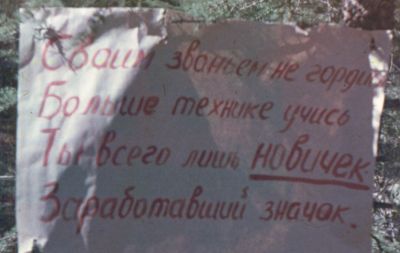 Своим званьем не гордись
Больше технике учись
Ты всего лишь новичек
Заработавший значок.